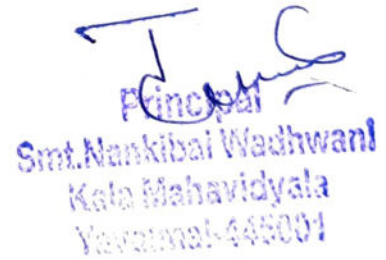 Principal
Smt.Nankibai Wadhwani
Kala Mahavidyala
Yavatmal-445001